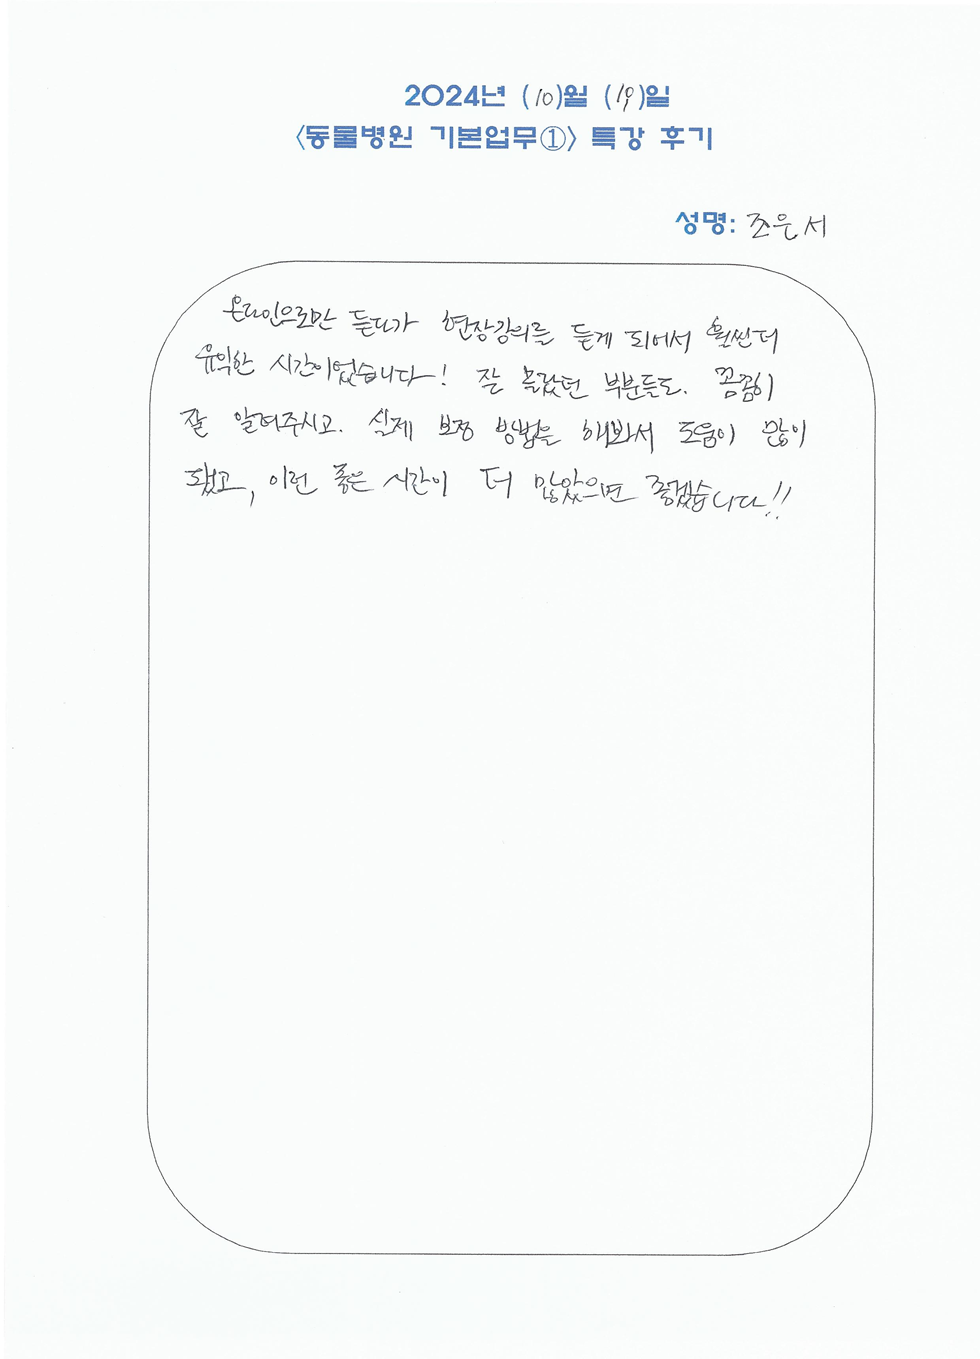 2024년 (10)월 (19)일
<동물병원 기본업무①> 특강 후기
성명: 조은서
온라인으로만 듣다가 현장강의를 듣게 되어서 훨씬 더
유익한 시간이었습니다! 잘 몰랐던 부분들도. 꼼꼼히
잘 알려주시고. 실제 보정 방법을 해봐서 도움이 많이
됐고, 이런 좋은 시간이 더 많았으면 좋겠습니다!!